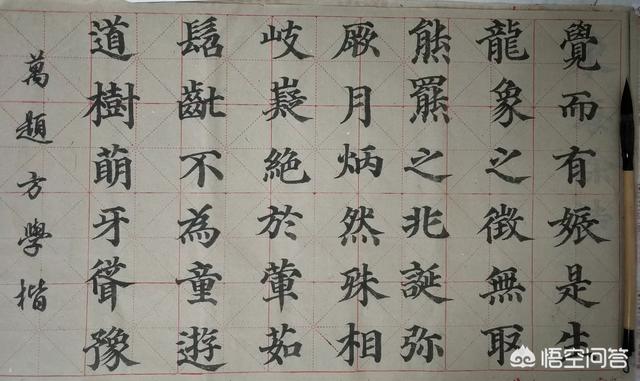 覺而有娠是生
龍象之徵無取
熊羆之兆誕弥
厥月炳然殊相
岐嶷絕於葷茹
髫齔不為童遊
道樹萌牙聳豫
萬題方學楷
悟空问答